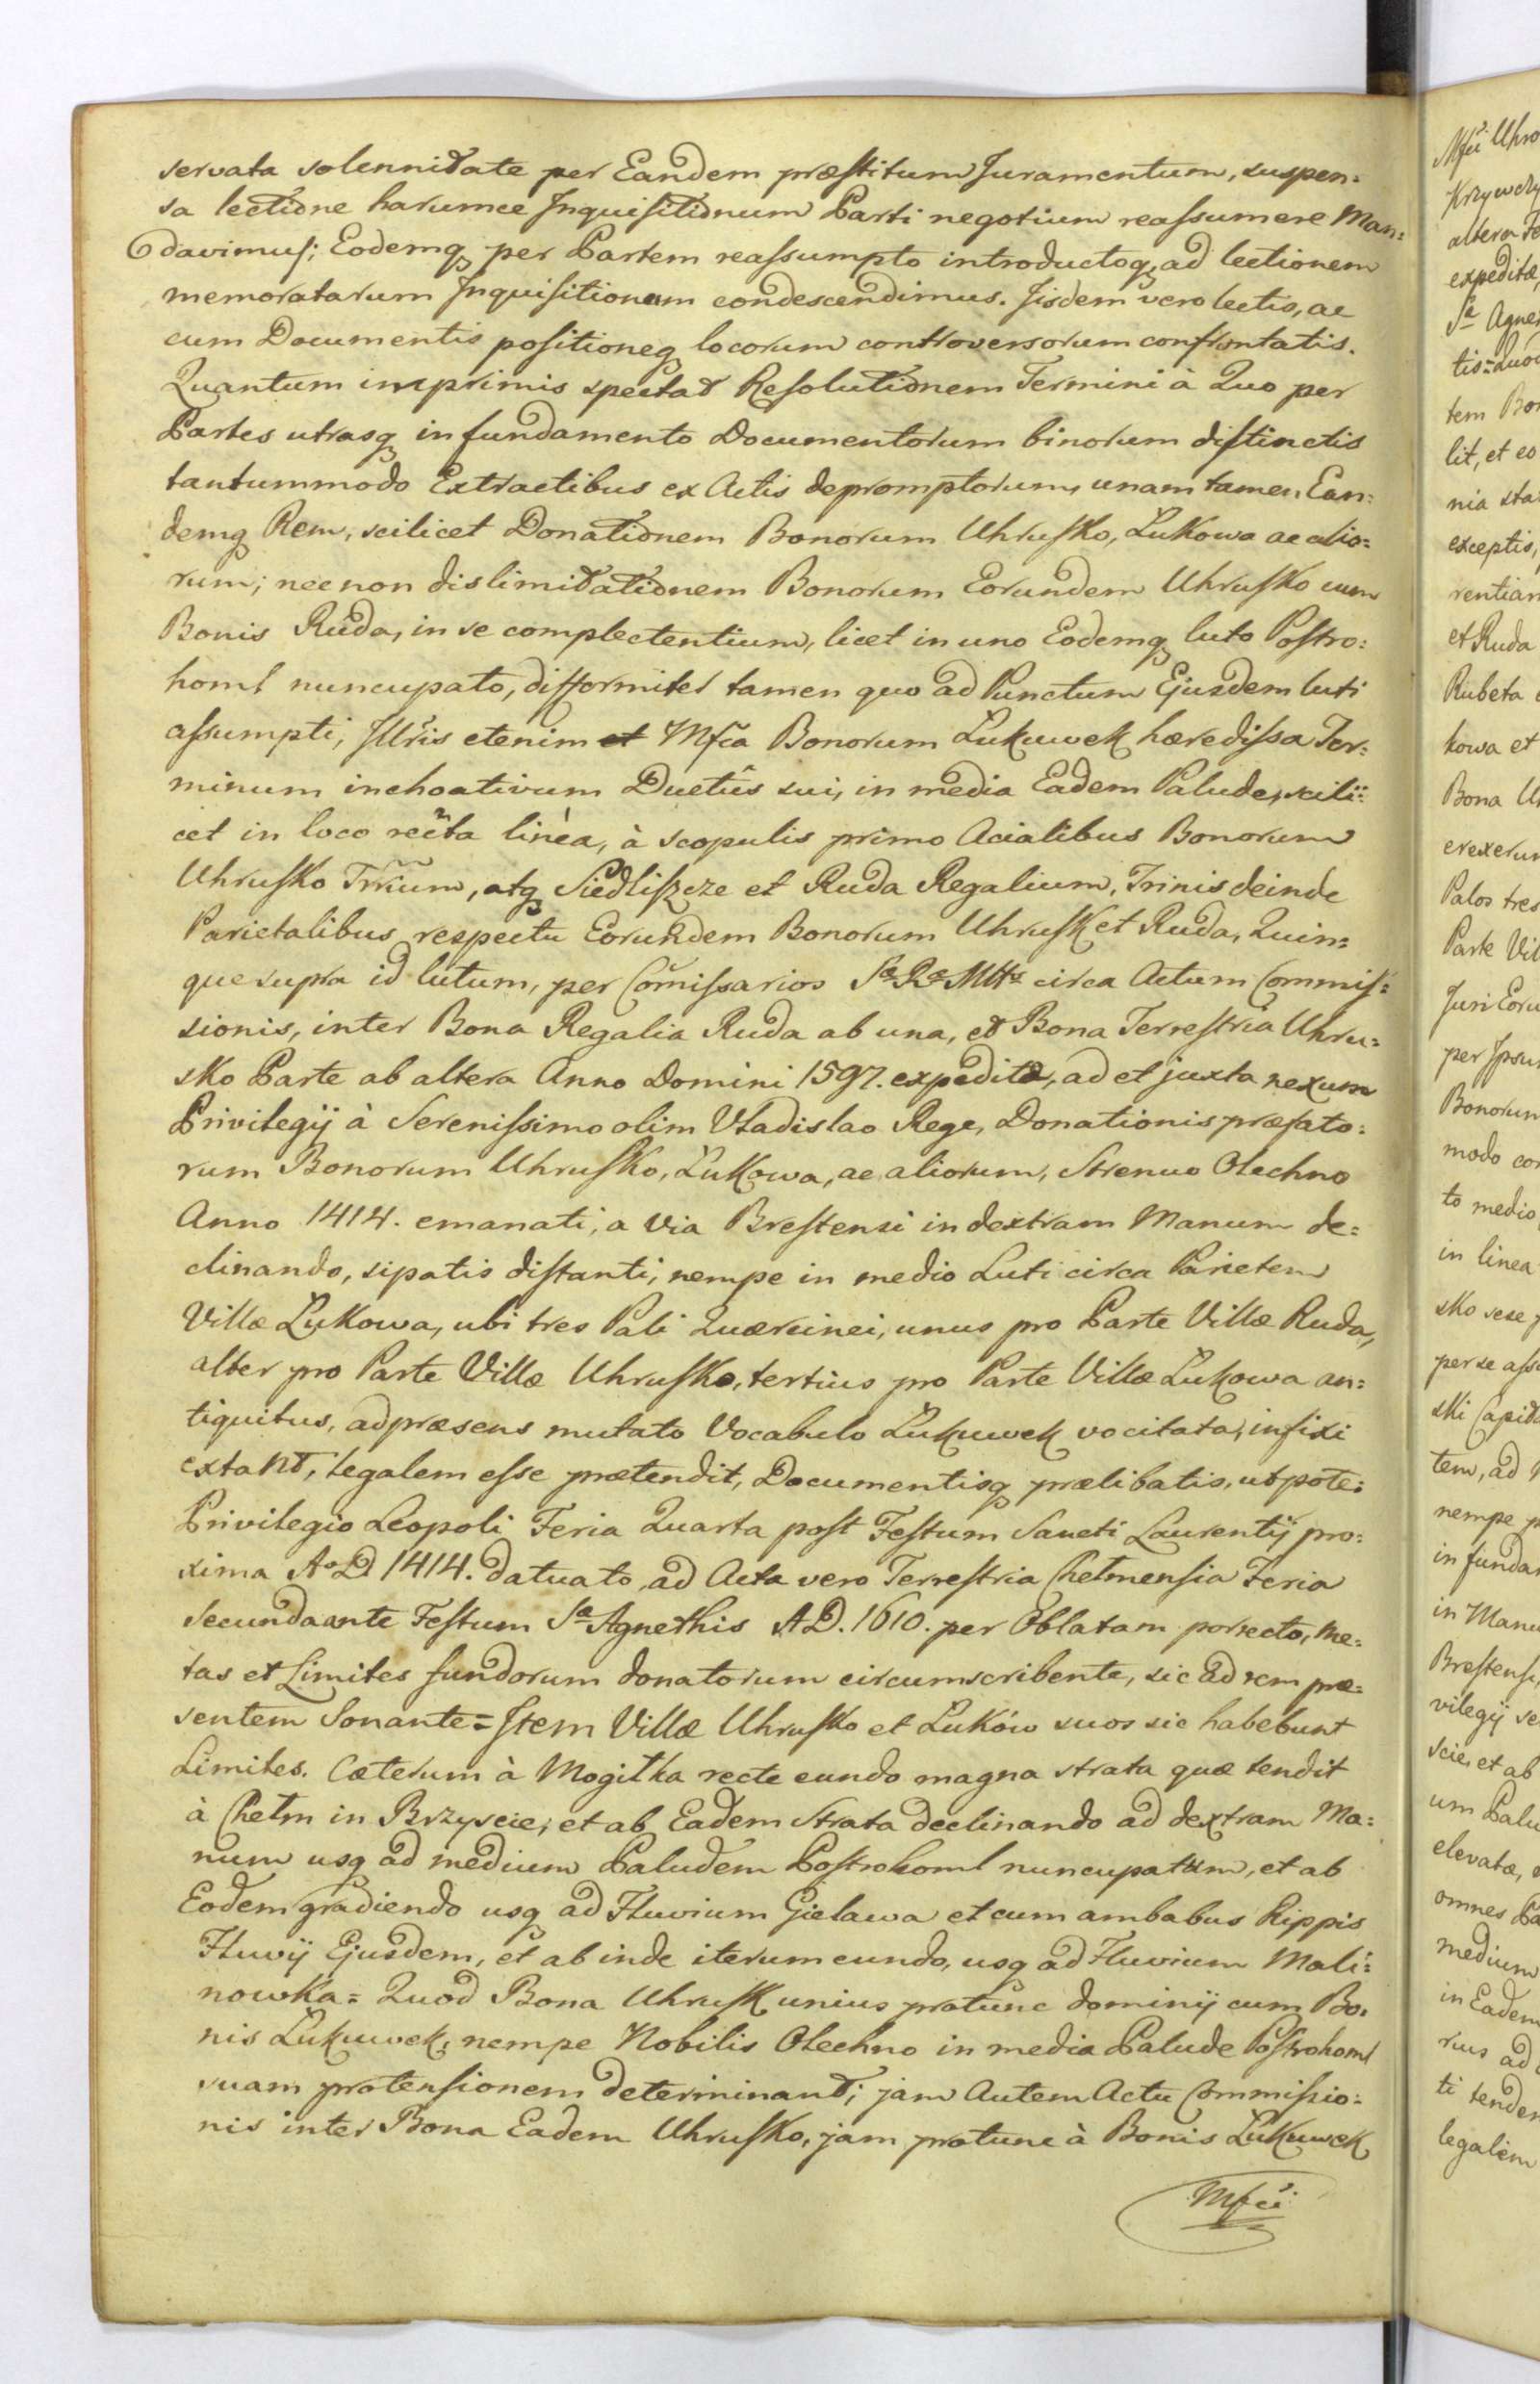 servata solennitate per Eandem præstitum Juramentum, suspen=
sa lectione harumce Inquisitionum Parti negotium reassumere Man=
davimus; Eodemq, per Partem reassumpto introductoq, ad lectionem
memoratarum Inquisitionum condescendimus. Jisdem vero lectis, ac
cum Documentis positioneq locorum controversorum confrontatis.
Quantum imprimis spectat Resolutionem Termini à Quo per
Partes utrasq in fundamento Documentorum binorum distinctis
tantummodo Extractibus ex Actis depromptorum, unam tamen Ean=
demq Rem, scilicet Donationem Bonorum Uhrusko, Łukowa ac alio=
rum; nec non dislimitationem Bonorum Eorundem Uhrusko cum
Bonis Ruda, in se complectentium, licet in uno Eodemq luto Postro=
homl nuncupato, difformiter tamen quo ad Punctum Ejusdem luti
assumpti, Jllris etenim et Mfca Bonorum Łukuwek hæredissa Ter=
minum inchoativum Ductûs sui, in media Eadem Palude, scili=
cet in loco recta linèa, à scopulis primo Acialibus Bonorum
Uhrusko Trrium, atq Siedliszcze et Ruda Regalium, Trinis deinde
Parietalibus respectu Eorundem Bonorum Uhrusk et Ruda, Quin=
que supra id lutum, per Comissarios Sæ Ræ Mttis circa Actum Commis=
sionis, inter Bona Regalia Ruda ab una, et Bona Terrestria Uhru=
sko Parte ab altera Anno Domini 1597. expedita, ad et juxta nexum
Privilegij à Serenissimo olim Vladislao Rege, Donationis præfato=
rum Bonorum Uhrusko, Łukowa, ac aliorum, Strenuo Olechno
Anno 1414. emanati, a via Brestensi in dextram Manum de=
clinando, sipatis distanti, nempe in medio Luti circa Parietem
Villæ Łukowa, ubi tres Pali Quærcinei, unus pro Parte Villæ Ruda,
alter pro Parte Villæ Uhrusko, tertius pro Parte Villæ Łukowa an=
tiquitus, adpræsens mutato Vocabulo Łukuwek vocitata, infixi
extant, legalem esse prætendit, Documentisq prælibatis, utpote:
Privilegio Leopoli Feria Quarta post Festum Sancti Laurentij pro=
xima Ao D 1414. datuato, ad Acta vero Terrestria Chełmensia Feria
Secunda ante Festum Sæ Agnethis AD. 1610. per Oblatam porrecto, Me=
tas et Limites fundorum donatorum circumscribente, sic ad rem præ=
sentem Sonante= Item Villæ Uhrusko et Luków suos sic habebunt
Limites. Cæterum à Mogiłka recte eundo magna strata quæ tendit
à Chełm in Brzyscie, et ab Eadem Strata declinando ad dextram Ma=
num usq ad medium Paludem Postrohoml nuncupatum, et ab
Eodem gradiendo usq ad Fluvium Gielawa et cum ambabus Rippis
Fluvij Ejusdem, et ab inde iterum eundo, usq ad Fluvium Mali=
nowka= Quod Bona Uhrusk unius protunc dominij cum Bo=
nis Łukuwek, nempe Nobilis Olechno in media Palude Postrohoml
suam protensionem determinant; jam Autem Actu Commissio=
nis inter Bona Eadem Uhrusko, jam protunc à Bonis Łukuwek
Mfci
Mfci Uhro
Krzywczy
altera
expeditæ,
Sæ Agne
tis=Quo
tem Bo
lit, et eo
nia sta
exceptis,
rentian
et Ruda
Rubeta
kowa et
Bona U
erexerun
Palos tres
Parte Vil
Juri Eoru
per Ipsu
Bonorum
modo co
to medio
in linea
sko sese
per se ass
ski Capit
tem, ad
nempe p
in funda
in Manu
Brestensi
vilegij se
scie, et ab
um Palu
elevatæ,
omnes
medium
in Eadem
rius ad
ti tende
legalem